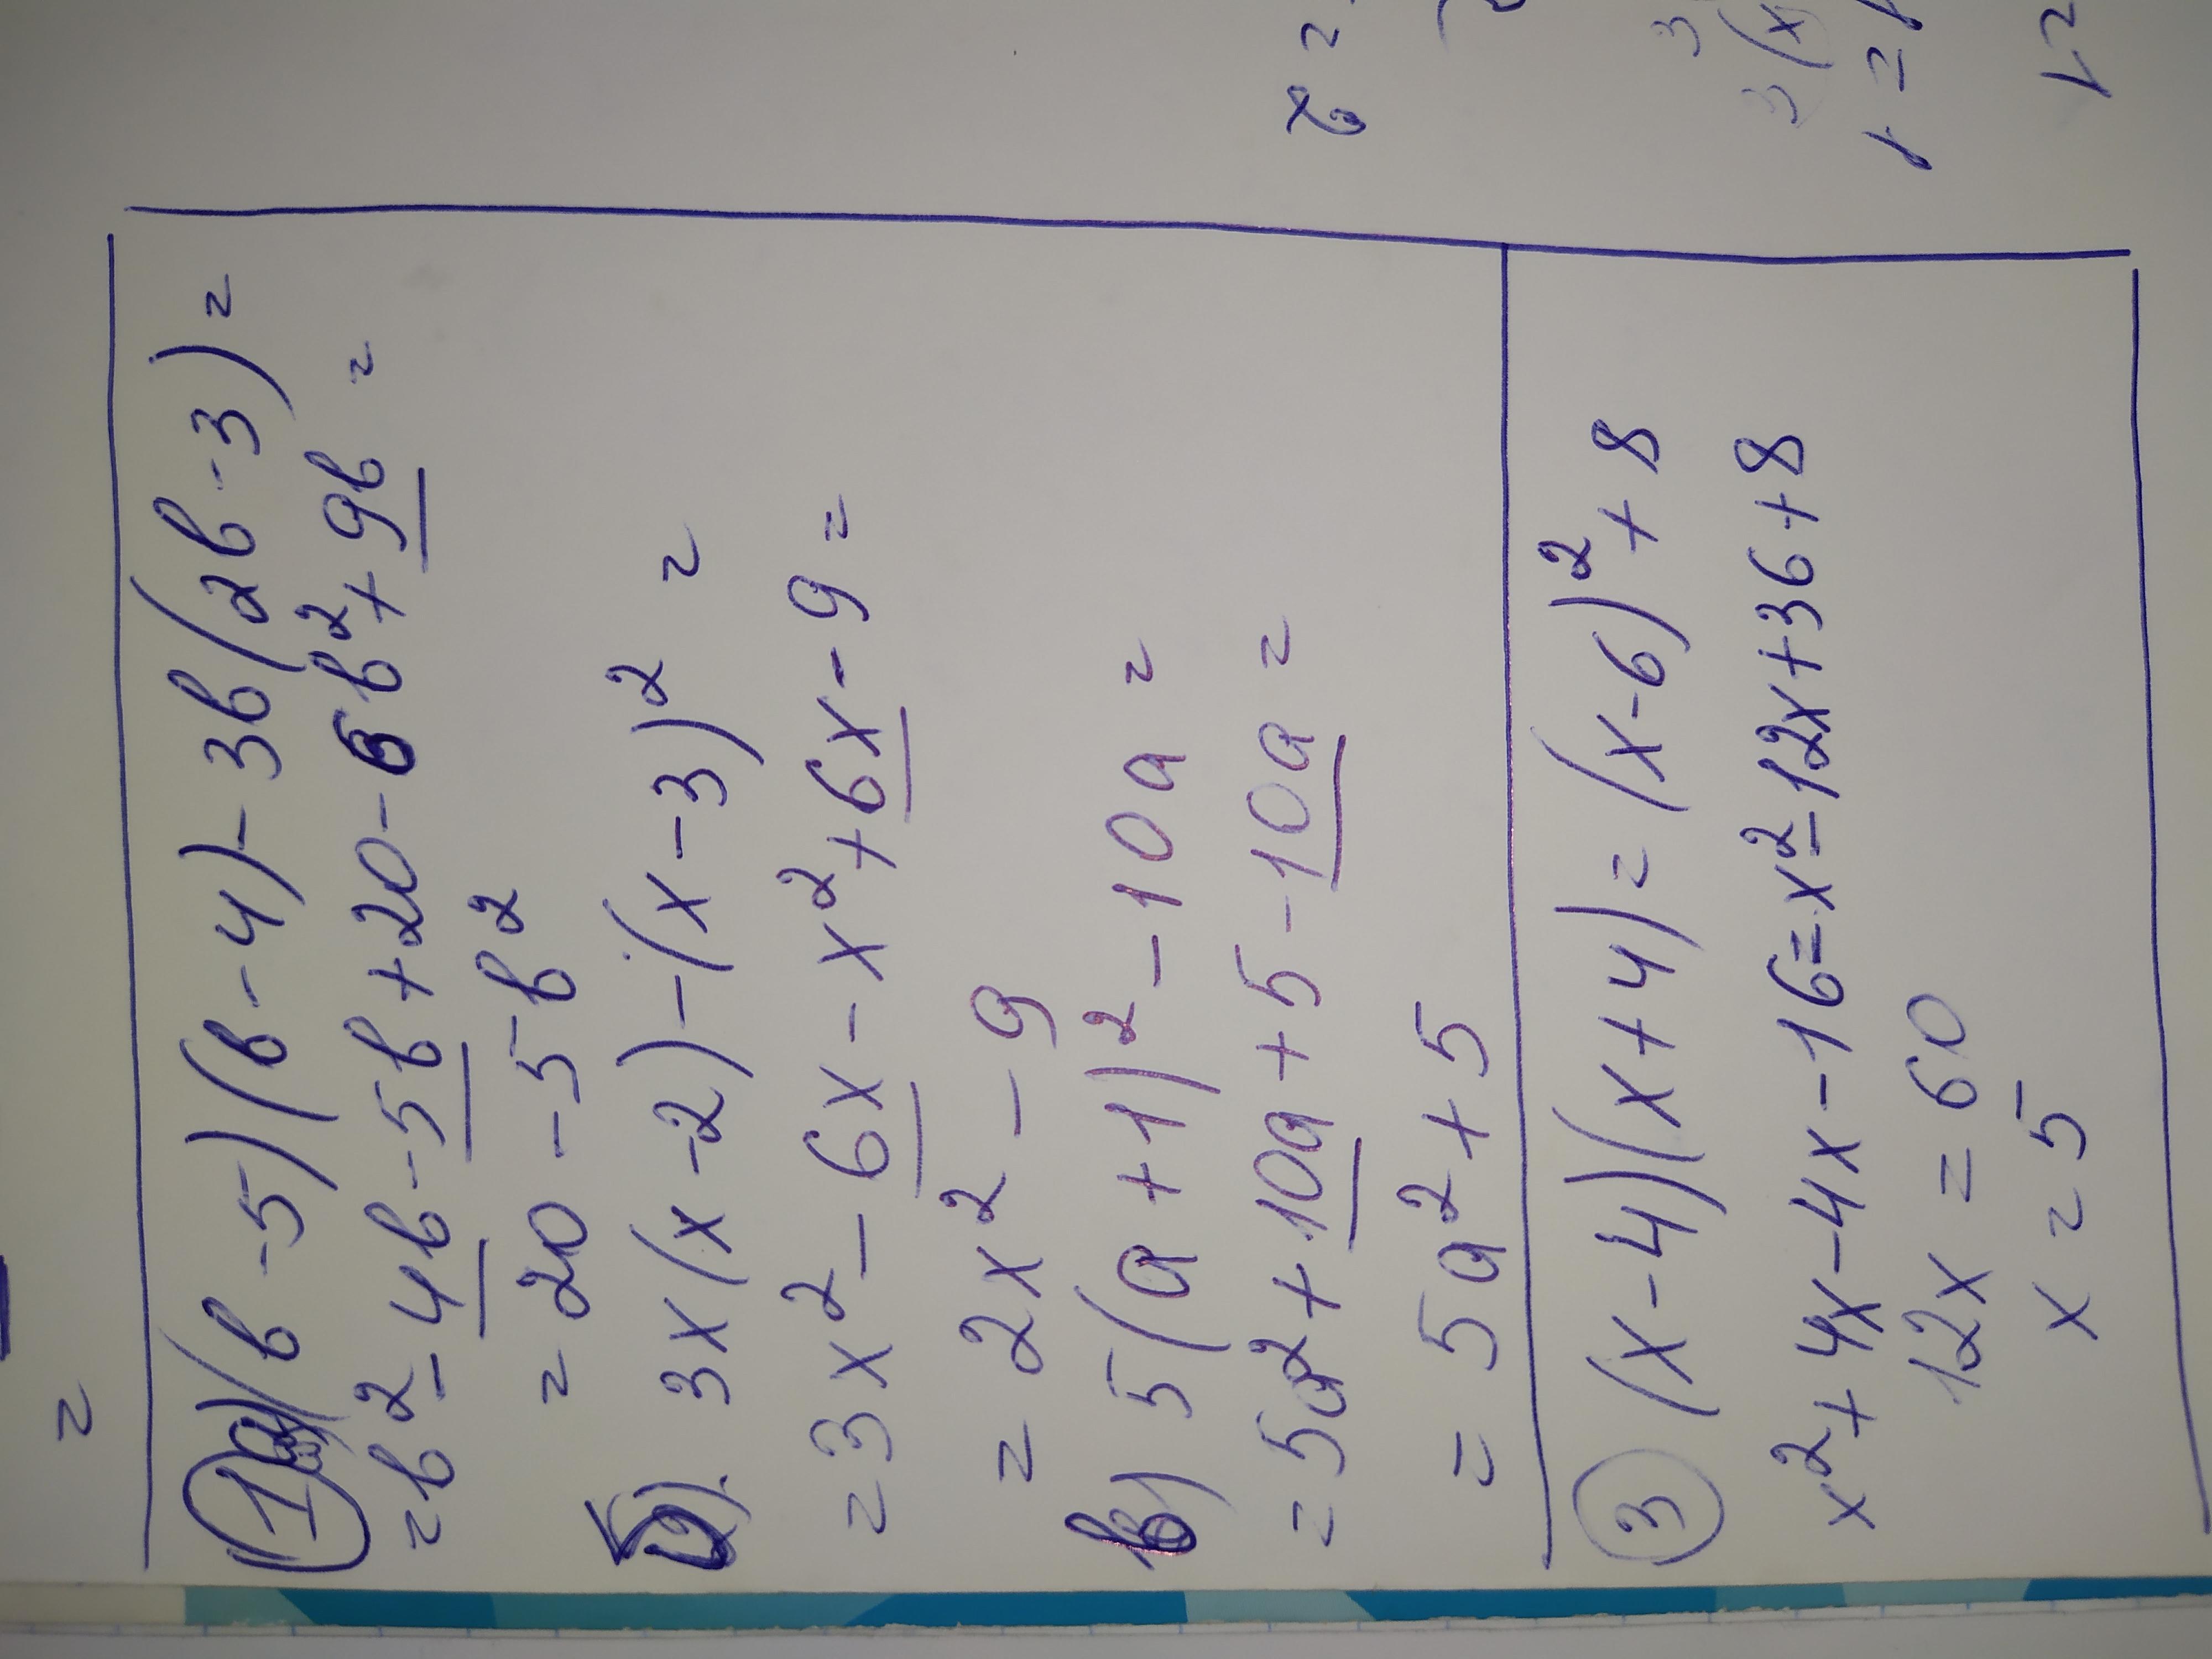 =
① а) (в-5)(в-4)-3в(2в-3)=
=в²-4в-5в+20-6в²+9в=
=20-5в²
б). 3x(x-2)-(x-3)²=
=3x²-6x-x²+6x-9=
=2x²-9
в) 5(a+1)²-10a=
=5a²+10a+5-10a=
=5a²+5
③ (x-4)(x+4)=(x-6)²+8
x²+4x-4x-16=x²-12x+36+8
12x=60
x=5